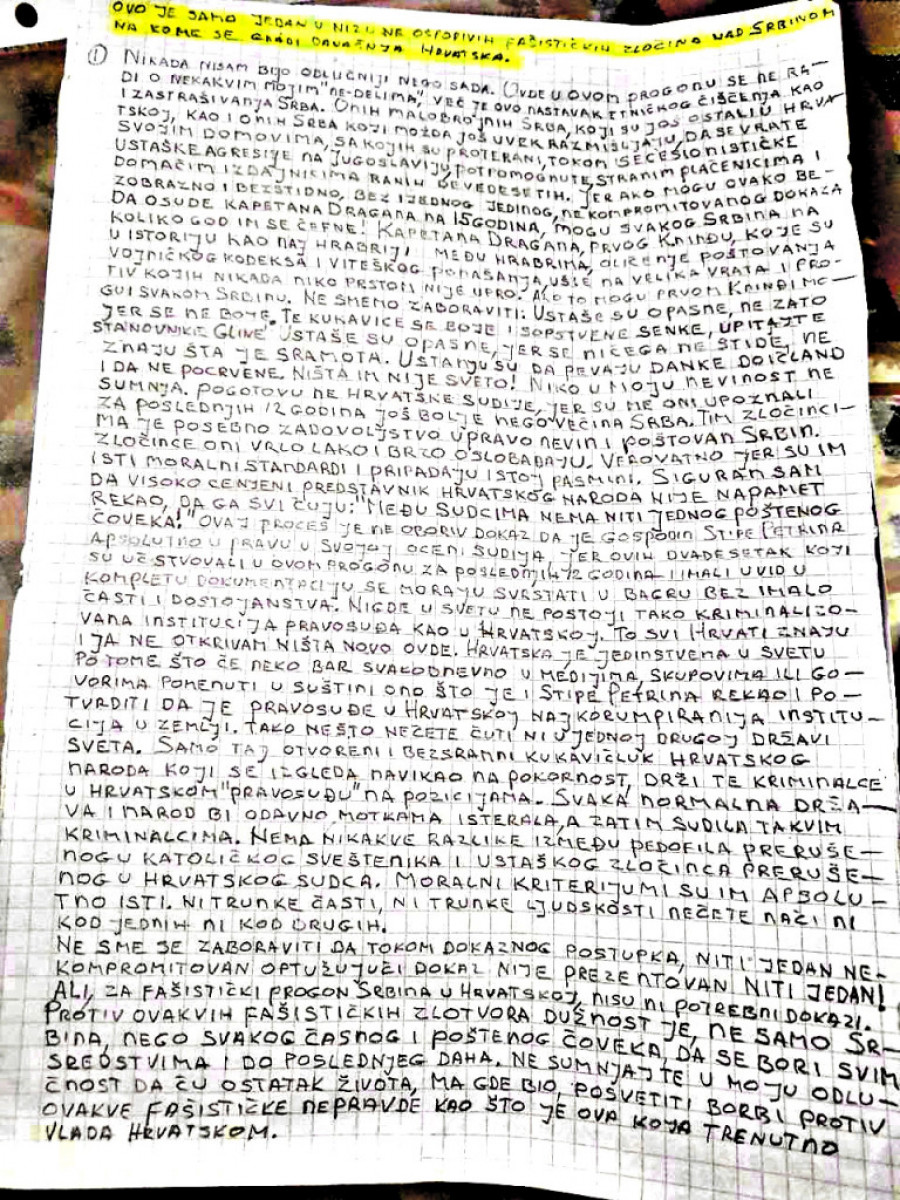 OVO JE SAMO JEDAN U NIZU NEOSPORIVIH FAŠISTIČKIH ZLOČINA NAD SRBINOM
NA KOME SE GRADI DANAŠNJA HRVATSKA.
① NIKADA NISAM BIJO ODLUČNIJI NEGO SADA. OVDE U OVOM PROGONU SE NE RA-
DI O NEKAKVIM MOJIM "NE-DELIMA", VEČ JE OVO NASTAVAK ETNIČKOG ČIŠČENJA KAO
I ZASTRAŠIVANJA SRBA. ONIH MALOBROJNIH SRBA, KOJI SU JOŠ OSTALI U HRVA-
TSKOJ, KAO I ONIH SRBA KOJI MOŽDA JOŠ UVEK RAZMIŠLJAJU, DA SE VRATE
SVOJIM DOMOVIMA, SA KOJIH SU PROTERANI, TOKOM SECESIONISTIČKE
USTAŠKE AGRESIJE NA JUGOSLAVIJU, POTPOMOGNUTE, STRANIM PLAČENICIMA I
DOMAČIM IZDAJNICIMA RANIH DEVEDESETIH. JER AKO MOGU OVAKO BE-
ZOBRAZNO I BEZSTIDNO, BEZ IJEDNOG JEDINOG, NE KOMPROMITOVANOG DOKAZA
DA OSUDE KAPETANA DRAGANA NA 15 GODINA, MOGU SVAKOG SRBINA NA
KOLIKO GOD IM SE ČEFNE! KAPETANA DRAGANA, PRVOG KNINĐU, KOJE SU
U ISTORIJU KAO NAJ HRABRIJI MEĐU HRABRIMA, OLIČENJE POŠTOVANJA
VOJNIČKOG KODEKSA I VITEŠKOG PONAŠANJA, UŠLE NA VELIKA VRATA I PRO-
TIV KOJIH NIKADA NIKO PRSTOM NIJE UPRO. AKO TO MOGU PRVOM KNINĐI MO-
GU I SVAKOM SRBINU. NE SMEMO ZABORAVITI: USTAŠE SU OPASNE, NE ZATO
JER SE NE BOJE. TE KUKAVICE SE BOJE I SOPSTVENE SENKE, UPITAJTE
STANOVNIKE GLINE USTAŠE SU OPASNE, JER SE NIČEGA NE STIDE, NE
ZNAJU ŠTA JE SRAMOTA. U STANJU SU DA PEVAJU DANKE DOJČLAND
I DA NE POCRVENE. NIŠTA IM NIJE SVETO! NIKO U MOJU NEVINOST NE
SUMNJA. POGOTOVU NE HRVATSKE SUDIJE, JER SU ME ONI UPOZNALI
ZA POSLEDNJIH 12 GODINA JOŠ BOLJE NEGO VEČINA SRBA. TIM ZLOČINCI-
MA JE POSEBNO ZADOVOLJSTVO UPRAVO NEVIN I POŠTOVAN SRBIN.
ZLOČINCE ONI VRLO LAKO I BRZO OSLOBAĐAJU. VEROVATNO JER SU IM
ISTI MORALNI STANDARDI I PRIPADAJU ISTOJ PASMINI. SIGURAN SAM
DA VISOKO CENJENI PREDSTAVNIK HRVATSKOG NARODA NIJE NAPAMET
REKAO, DA GA SVI ČUJU: "MEĐU SUDCIMA NEMA NITI JEDNOG POŠTENOG
ČOVEKA!" OVAJ PROCES JE NE OPORIV DOKAZ DA JE GOSPODIN STIPE PETRINA
APSOLUTNO U PRAVU U SVOJOJ OCENI SUDIJA JER OVIH DVADESETAK KOJI
SU UČSTVOVALI U OVOM PROGONU ZA POSLEDNJIH 12 GODINA I IMALI UVID U
KOMPLETU DOKUMENTACIJU SE MORAJU SVRSTATI U BAGRU BEZ IMALO
ČASTI I DOSTOJANSTVA. NIGDE U SVETU NE POSTOJI TAKO KRIMINALIZO-
VANA INSTITUCIJA PRAVOSUĐA KAO U HRVATSKOJ. TO SVI HRVATI ZNAJU
I JA NE OTKRIVAM NIŠTA NOVO OVDE. HRVATSKA JE JEDINSTVENA U SVETU
PO TOME ŠTO ČE NEKO BAR SVAKODNEVNO U MEDIJIMA, SKUPOVIMA ILI GO-
VORIMA POMENUTI U SUŠTINI ONO ŠTO JE I STIPE PETRINA REKAO I PO-
TVRDITI DA JE PRAVOSUĐE U HRVATSKOJ NAJKORUMPIRANIJA INSTITU-
CIJA U ZEMLJI. TAKO NEŠTO NEČETE ČUTI NI U JEDNOJ DRUGOJ DRŽAVI
SVETA. SAMO TAJ OTVORENI I BEZSRAMNI KUKAVIČLUK HRVATSKOG
NARODA KOJI SE IZGLEDA NAVIKAO NA POKORNOST, DRŽI TE KRIMINALCE
U HRVATSKOM "PRAVOSUĐU" NA POZICIJAMA. SVAKA NORMALNA DRŽA-
VA I NAROD BI ODAVNO MOTKAMA ISTERALA, A ZATIM SUDILA TAKVIM
KRIMINALCIMA. NEMA NIKAKVE RAZLIKE IZMEĐU PEDOFILA PRERUŠE-
NOG U KATOLIČKOG SVEŠTENIKA I USTAŠKOG ZLOČINCA PRERUŠE-
NOG U HRVATSKOG SUDCA. MORALNI KRITERIJUMI SU IM APSOLU-
TNO ISTI. NI TRUNKE ČASTI, NI TRUNKE LJUDSKOSTI NEČETE NAČI NI
KOD JEDNIH NI KOD DRUGIH.
NE SME SE ZABORAVITI DA TOKOM DOKAZNOG POSTUPKA, NITI JEDAN NE-
KOMPROMITOVAN OPTUŽUJUČI DOKAZ NIJE PREZENTOVAN NITI JEDAN!
ALI, ZA FAŠISTIČKI PROGON SRBINA U HRVATSKOJ, NISU NI POTREBNI DOKAZI.
PROTIV OVAKVIH FAŠISTIČKIH ZLOTVORA DUŽNOST JE, NE SAMO SR-
BINA, NEGO SVAKOG ČASNOG I POŠTENOG ČOVEKA, DA SE BORI SVIM
SREDSTVIMA I DO POSLEDNJEG DAHA. NE SUMNJAJTE U MOJU ODLU-
ČNOST DA ČU OSTATAK ŽIVOTA, MA GDE BIO, POSVETITI BORBI PROTIV
OVAKVE FAŠISTIČKE NEPRAVDE KAO ŠTO JE OVA KOJA TRENUTNO
VLADA HRVATSKOM.